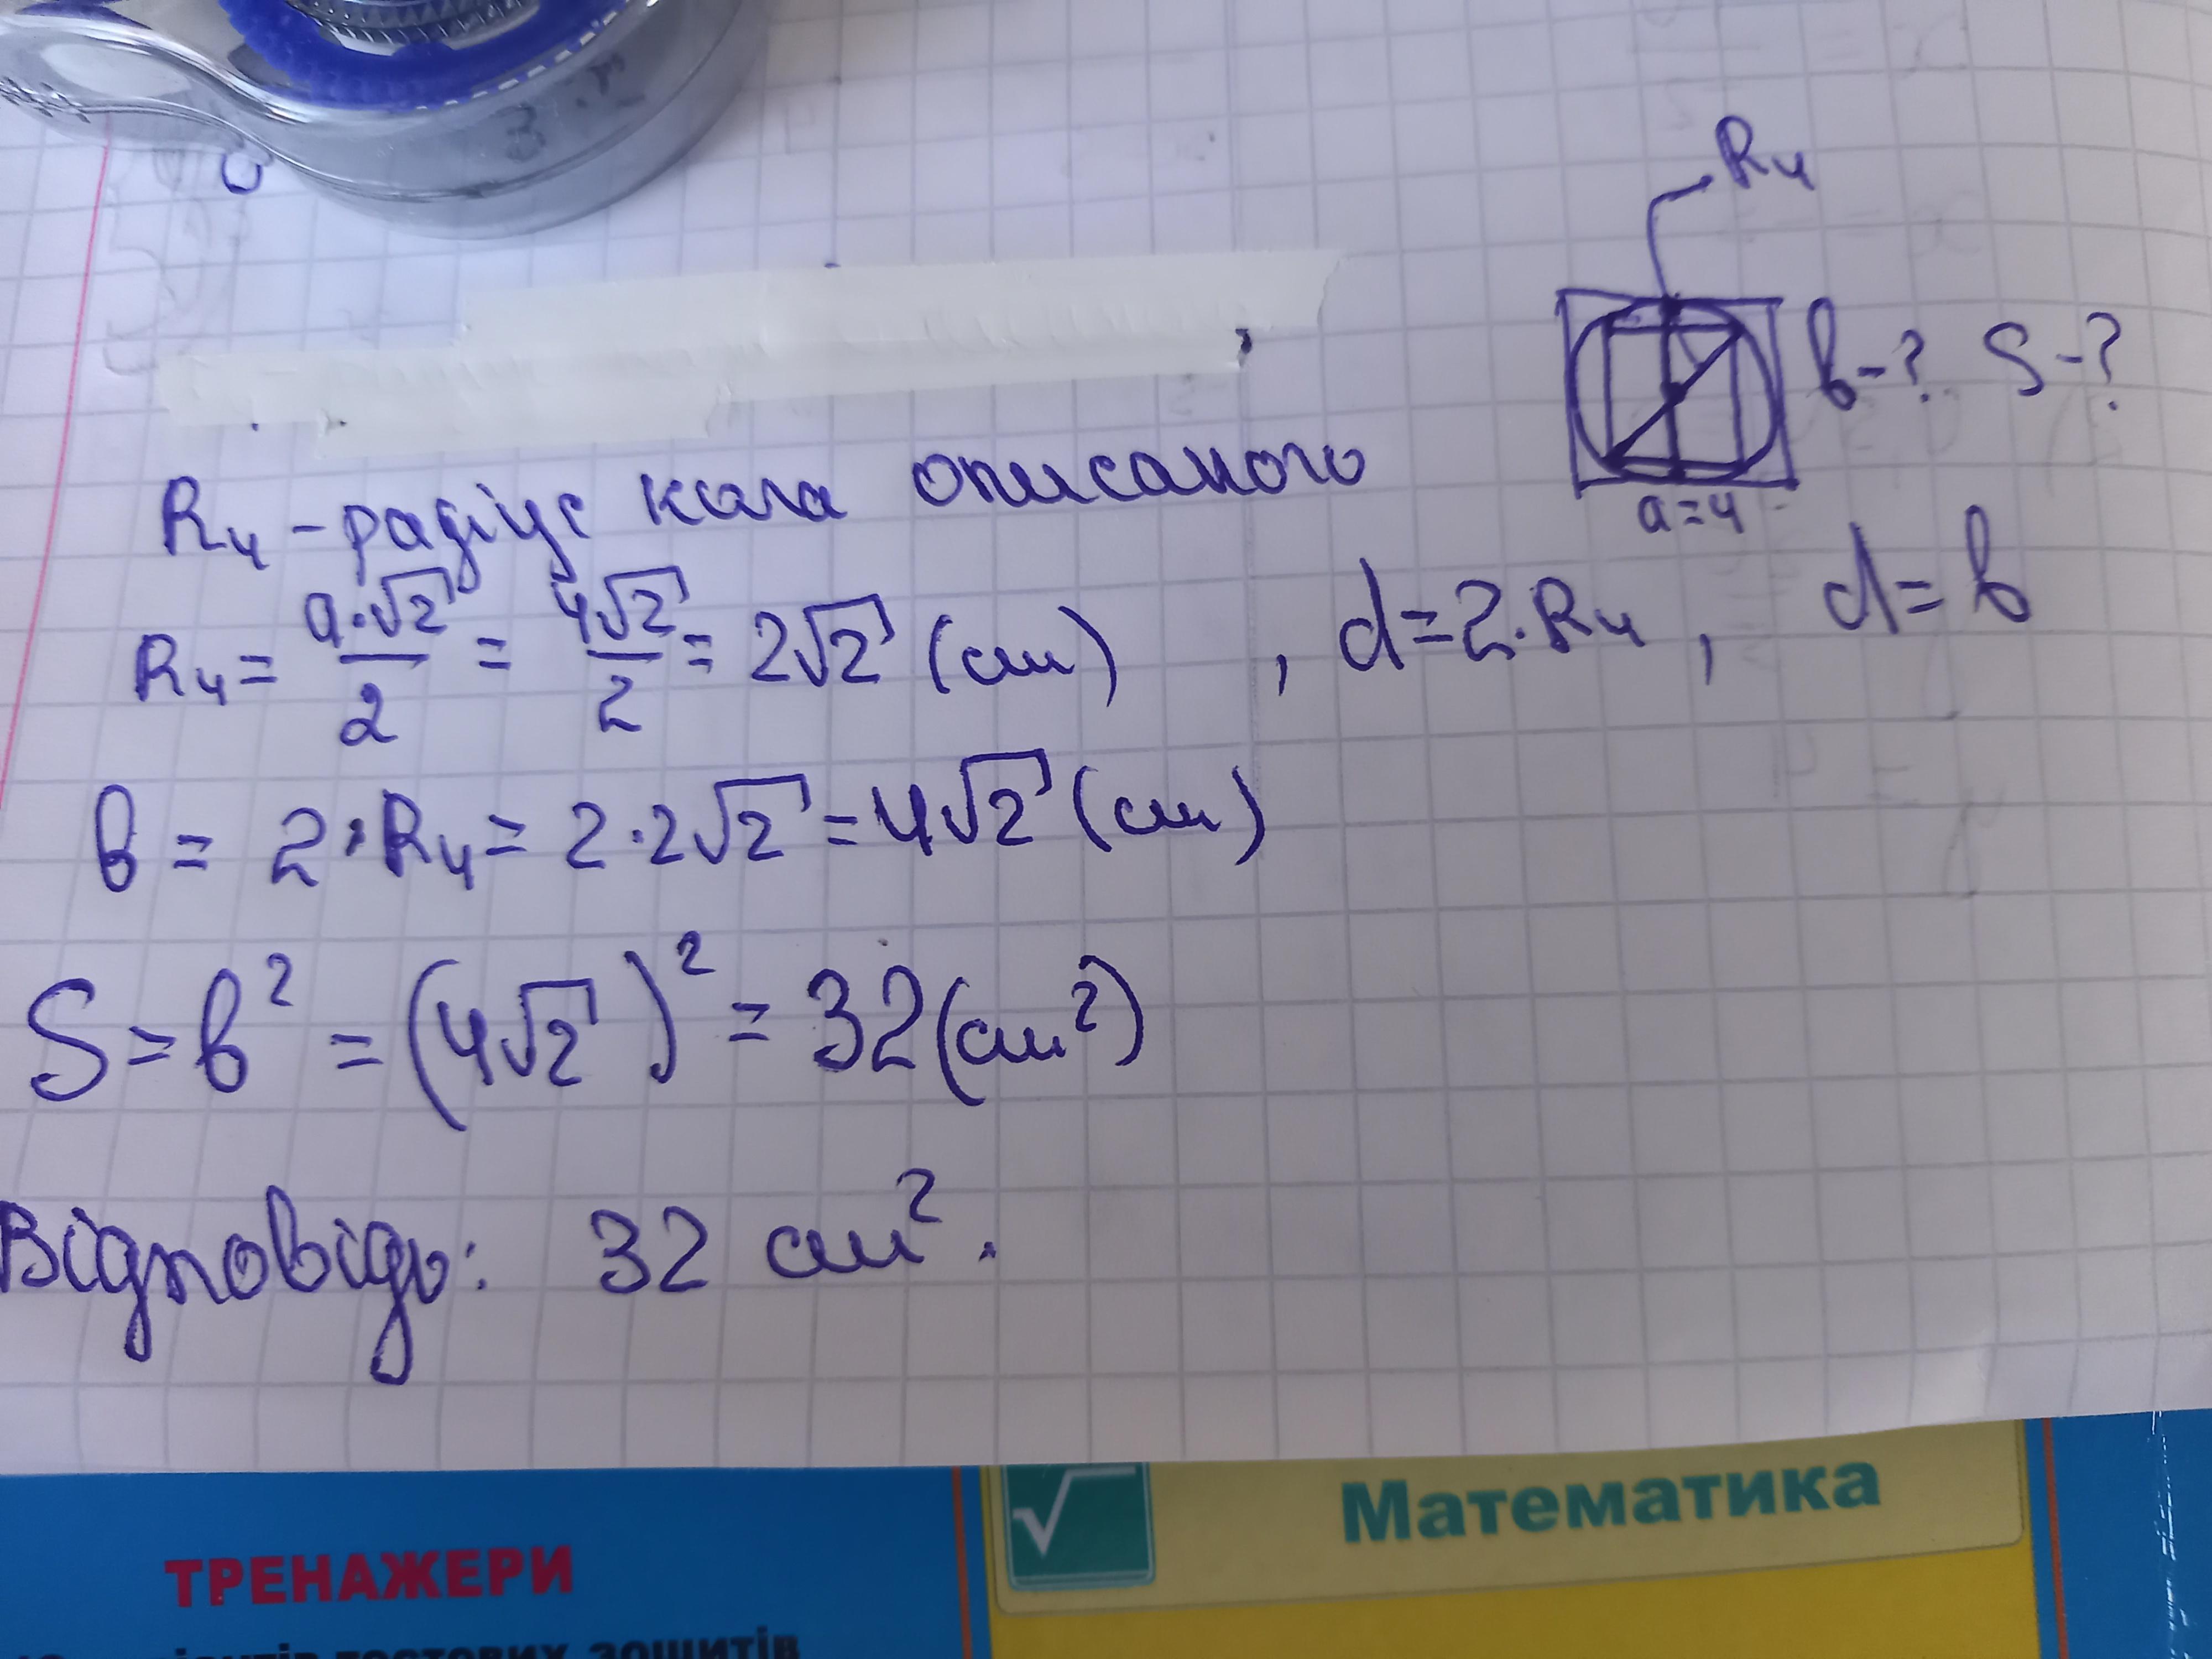 R₄
в-? S-?
a=4
R₄ – радіус кола описаного
R₄ = a·√2/2 = 4√2/2 = 2√2 (см) , d=2·R₄ , d=в
в = 2·R₄ = 2·2√2 = 4√2 (см)
S = в² = (4√2)² = 32 (см²)
Відповідь: 32 см².
Математика
ТРЕНАЖЕРИ
тестових зошитів